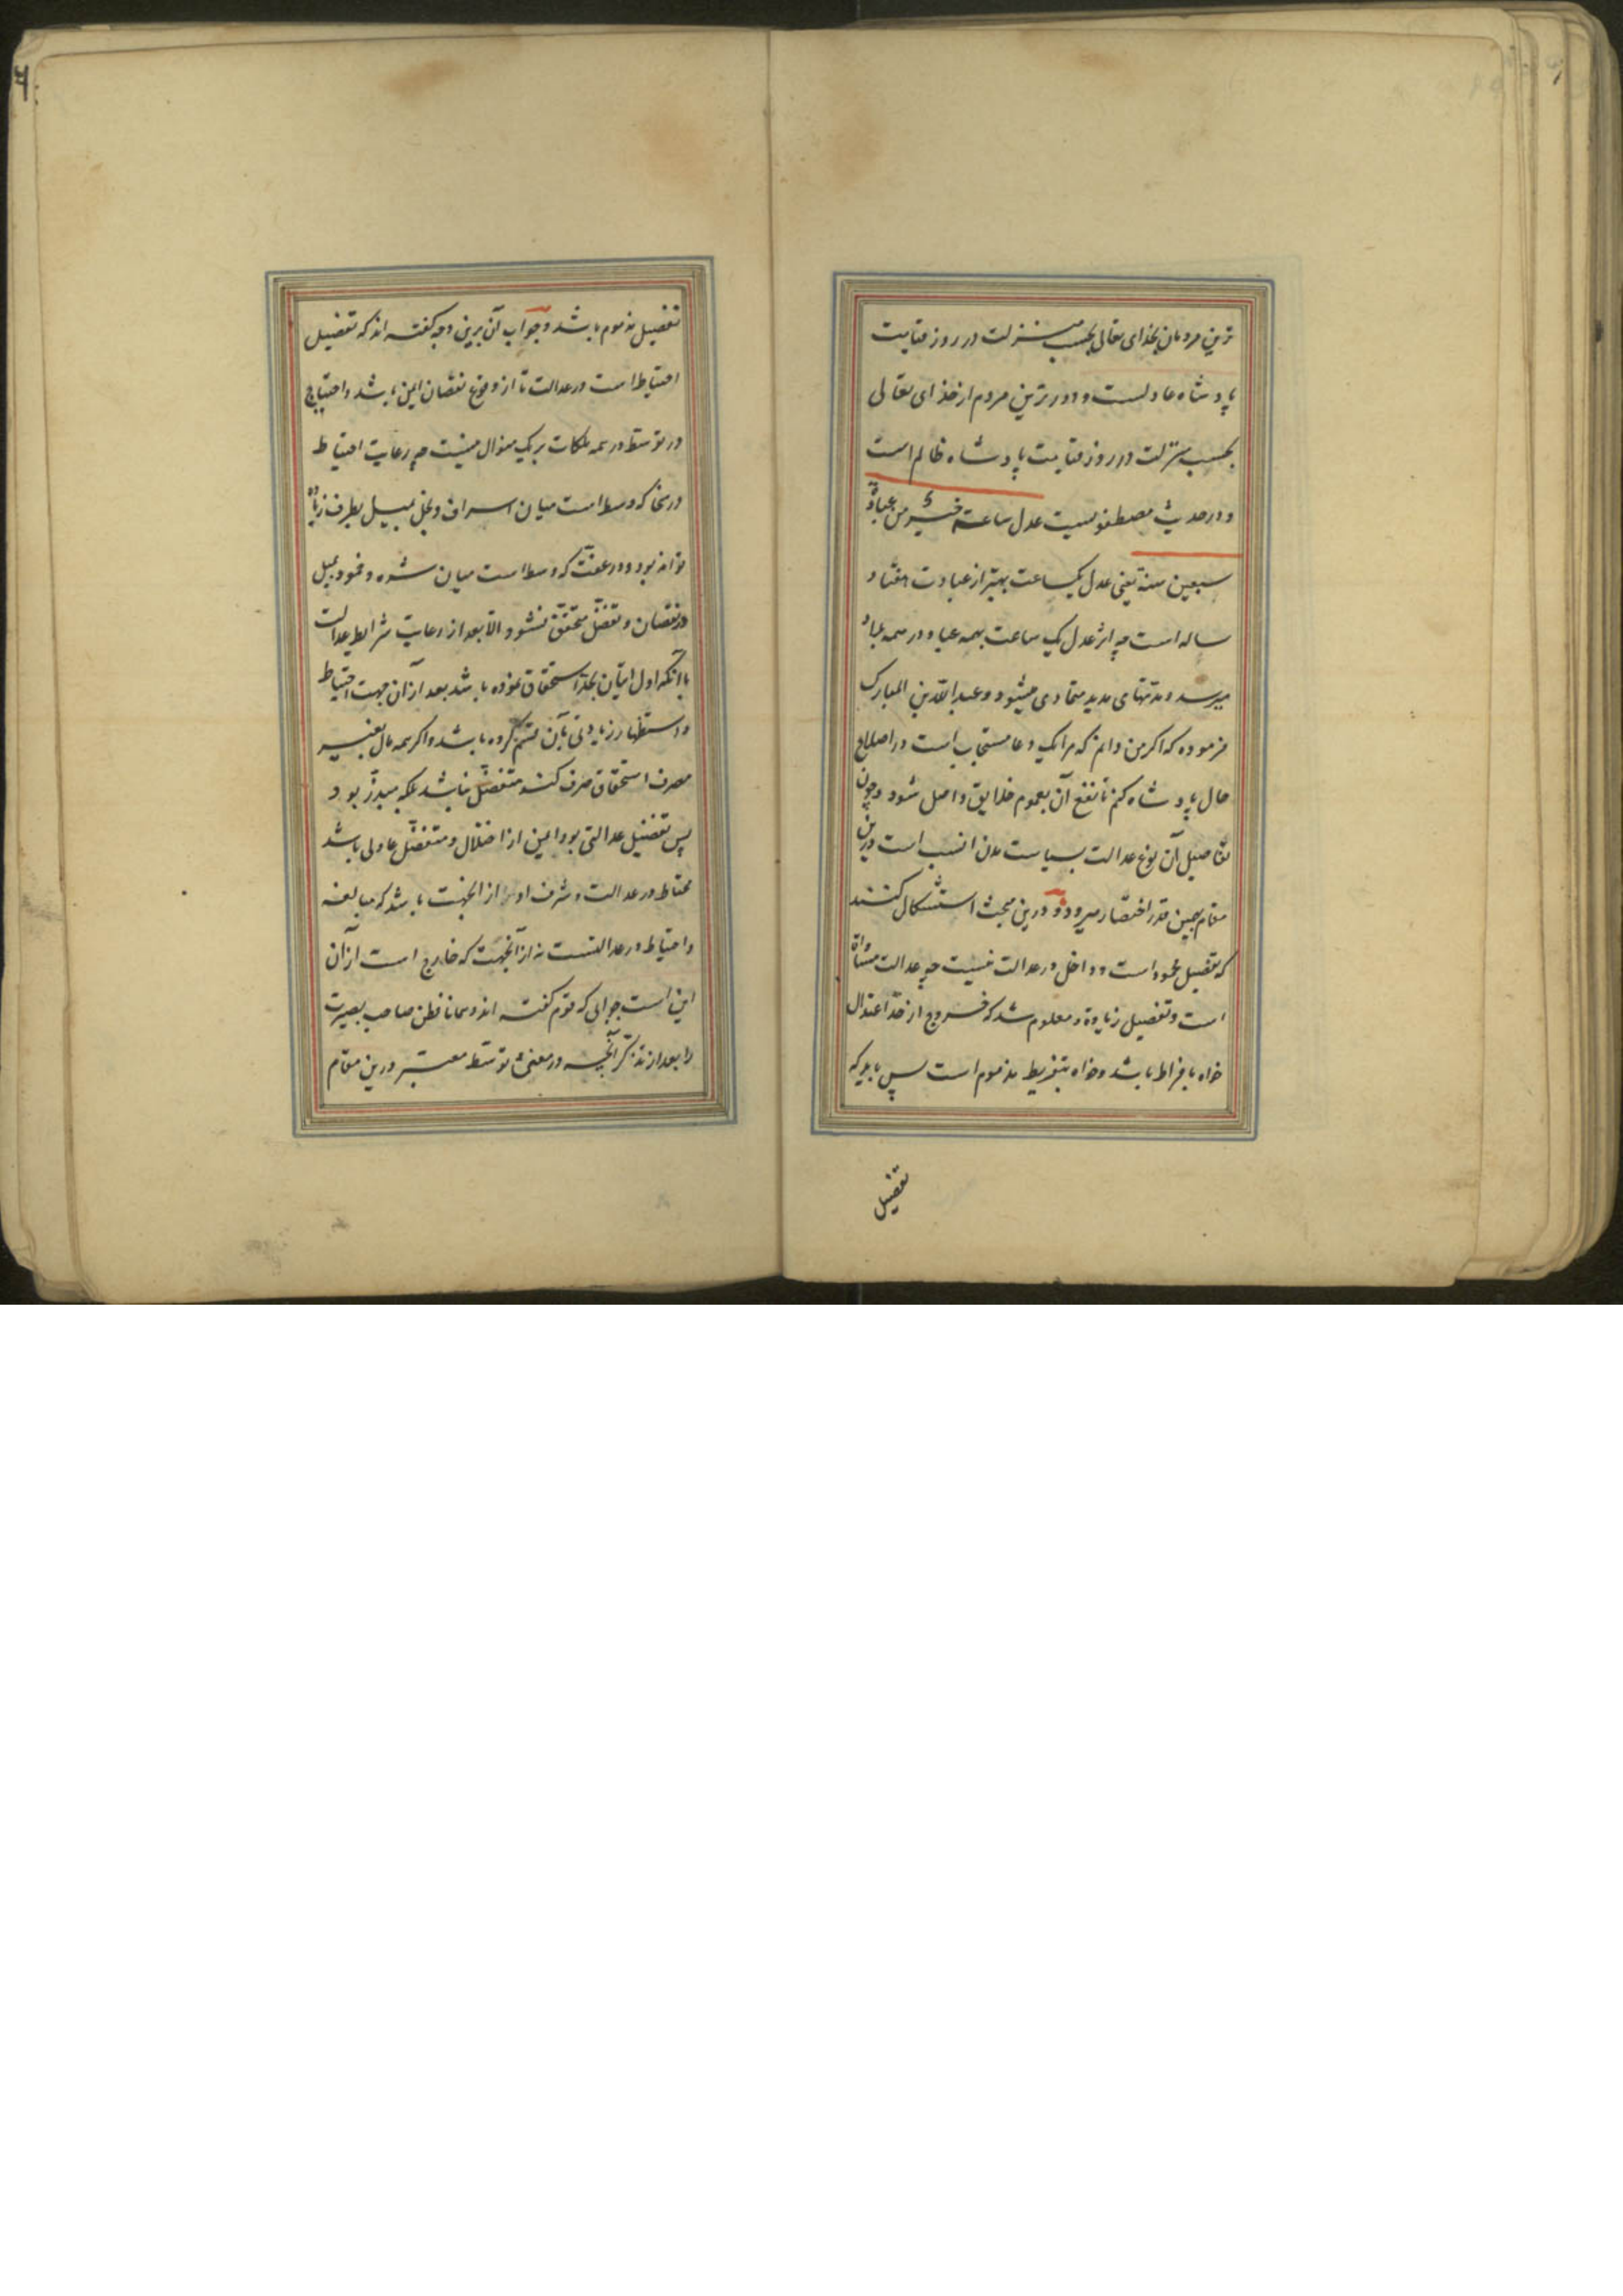 ترین مردمان بخدای تعالی بحسب منزلت در روز قیامت
پادشاه عادلست و دورترین مردم از خدای تعالی
بحسب منزلت در روز قیامت پادشاه ظالم است
و در حدیث مصطفویست عدل ساعة خیر من عبادة
سبعین سنة یعنی عدل یکساعت بهتر از عبادت هفتاد
ساله است چه اثر عدل یک ساعت بهمه عباد و در همه بلاد
میرسد و مدتهای مدید متمادی میشود و عبدالله بن المبارک
فرموده که اگر من دانم که مرا یک دعا مستجاب است در اصلاح
حال پادشاه کنم تا نفع آن بعموم خلایق واصل شود و چون
تفاصیل آن نوع عدالت بسیاست مدن انسب است درین
مقام بهمین قدر اختصار میرود و درین مبحث استشکال کنند
که تفضیل محمود است و داخل در عدالت نیست چه عدالت مساواة
است و تفضیل زیادة و معلوم شد که خروج از حد اعتدال
خواه بافراط باشد و خواه بتفریط مذموم است پس باید که
تفضیل
تفضیل مذموم باشد و جواب آن برین وجه گفته اند که تفضیل
احتیاط است در عدالت تا از وقوع نقصان ایمن باشد و احتیاج
در توسط در همه ملکات بر یک منوال نیست چه رعایت احتیاط
در سخا که وسط است میان اسراف و بخل بمیل بطرف زیاده
تواند بود و در عفت که وسط است میان شره و خمود بمیل
در نقصان و تفضل متحقق نشود الا بعد از رعایت شرایط عدالت
با آنکه اول اتیان بحد استحقاق نموده باشد بعد از آن جهت احتیاط
و استظهار زیادتی بآن منضم کرده باشد و اگر همه مال بغیر
مصرف استحقاق صرف کند متفضل نباشد بلکه مبذر بود
پس تفضیل عدالتی بود ایمن از اختلال و متفضل عادلی باشد
محتاط در عدالت و شرف او از انجهت باشد که مبالغه
و احتیاط در عدالتست نه از آنجهت که خارج است از آن
این است جوابی که قوم گفته اند و همانا فطن صاحب بصیرت
را بعد از تذکر آنچه در معنی توسط معتبر درین مقام